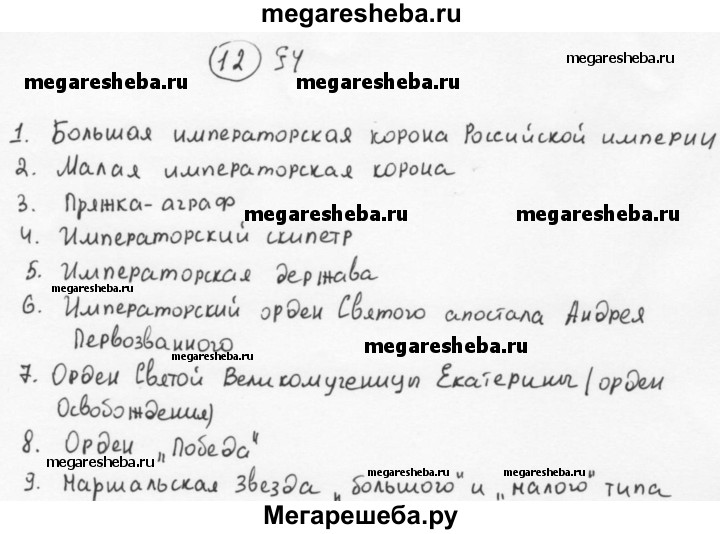 megaresheba.ru
12 §4
megaresheba.ru
megaresheba.ru
1. Большая императорская корона Российской империи
2. Малая императорская корона
3. Пряжка-аграф
megaresheba.ru
megaresheba.ru
4. Императорский скипетр
5. Императорская держава
6. Императорский орден Святого апостала Андрея
Первозванного
megaresheba.ru
megaresheba.ru
7. Орден Святой Великомученицы Екатерины (орден
Освобождения)
8. Орден „Победа"
megaresheba.ru
megaresheba.ru
megaresheba.ru
9. Маршальская Звезда „большого" и „малого" типа
Мегарешеба.ру